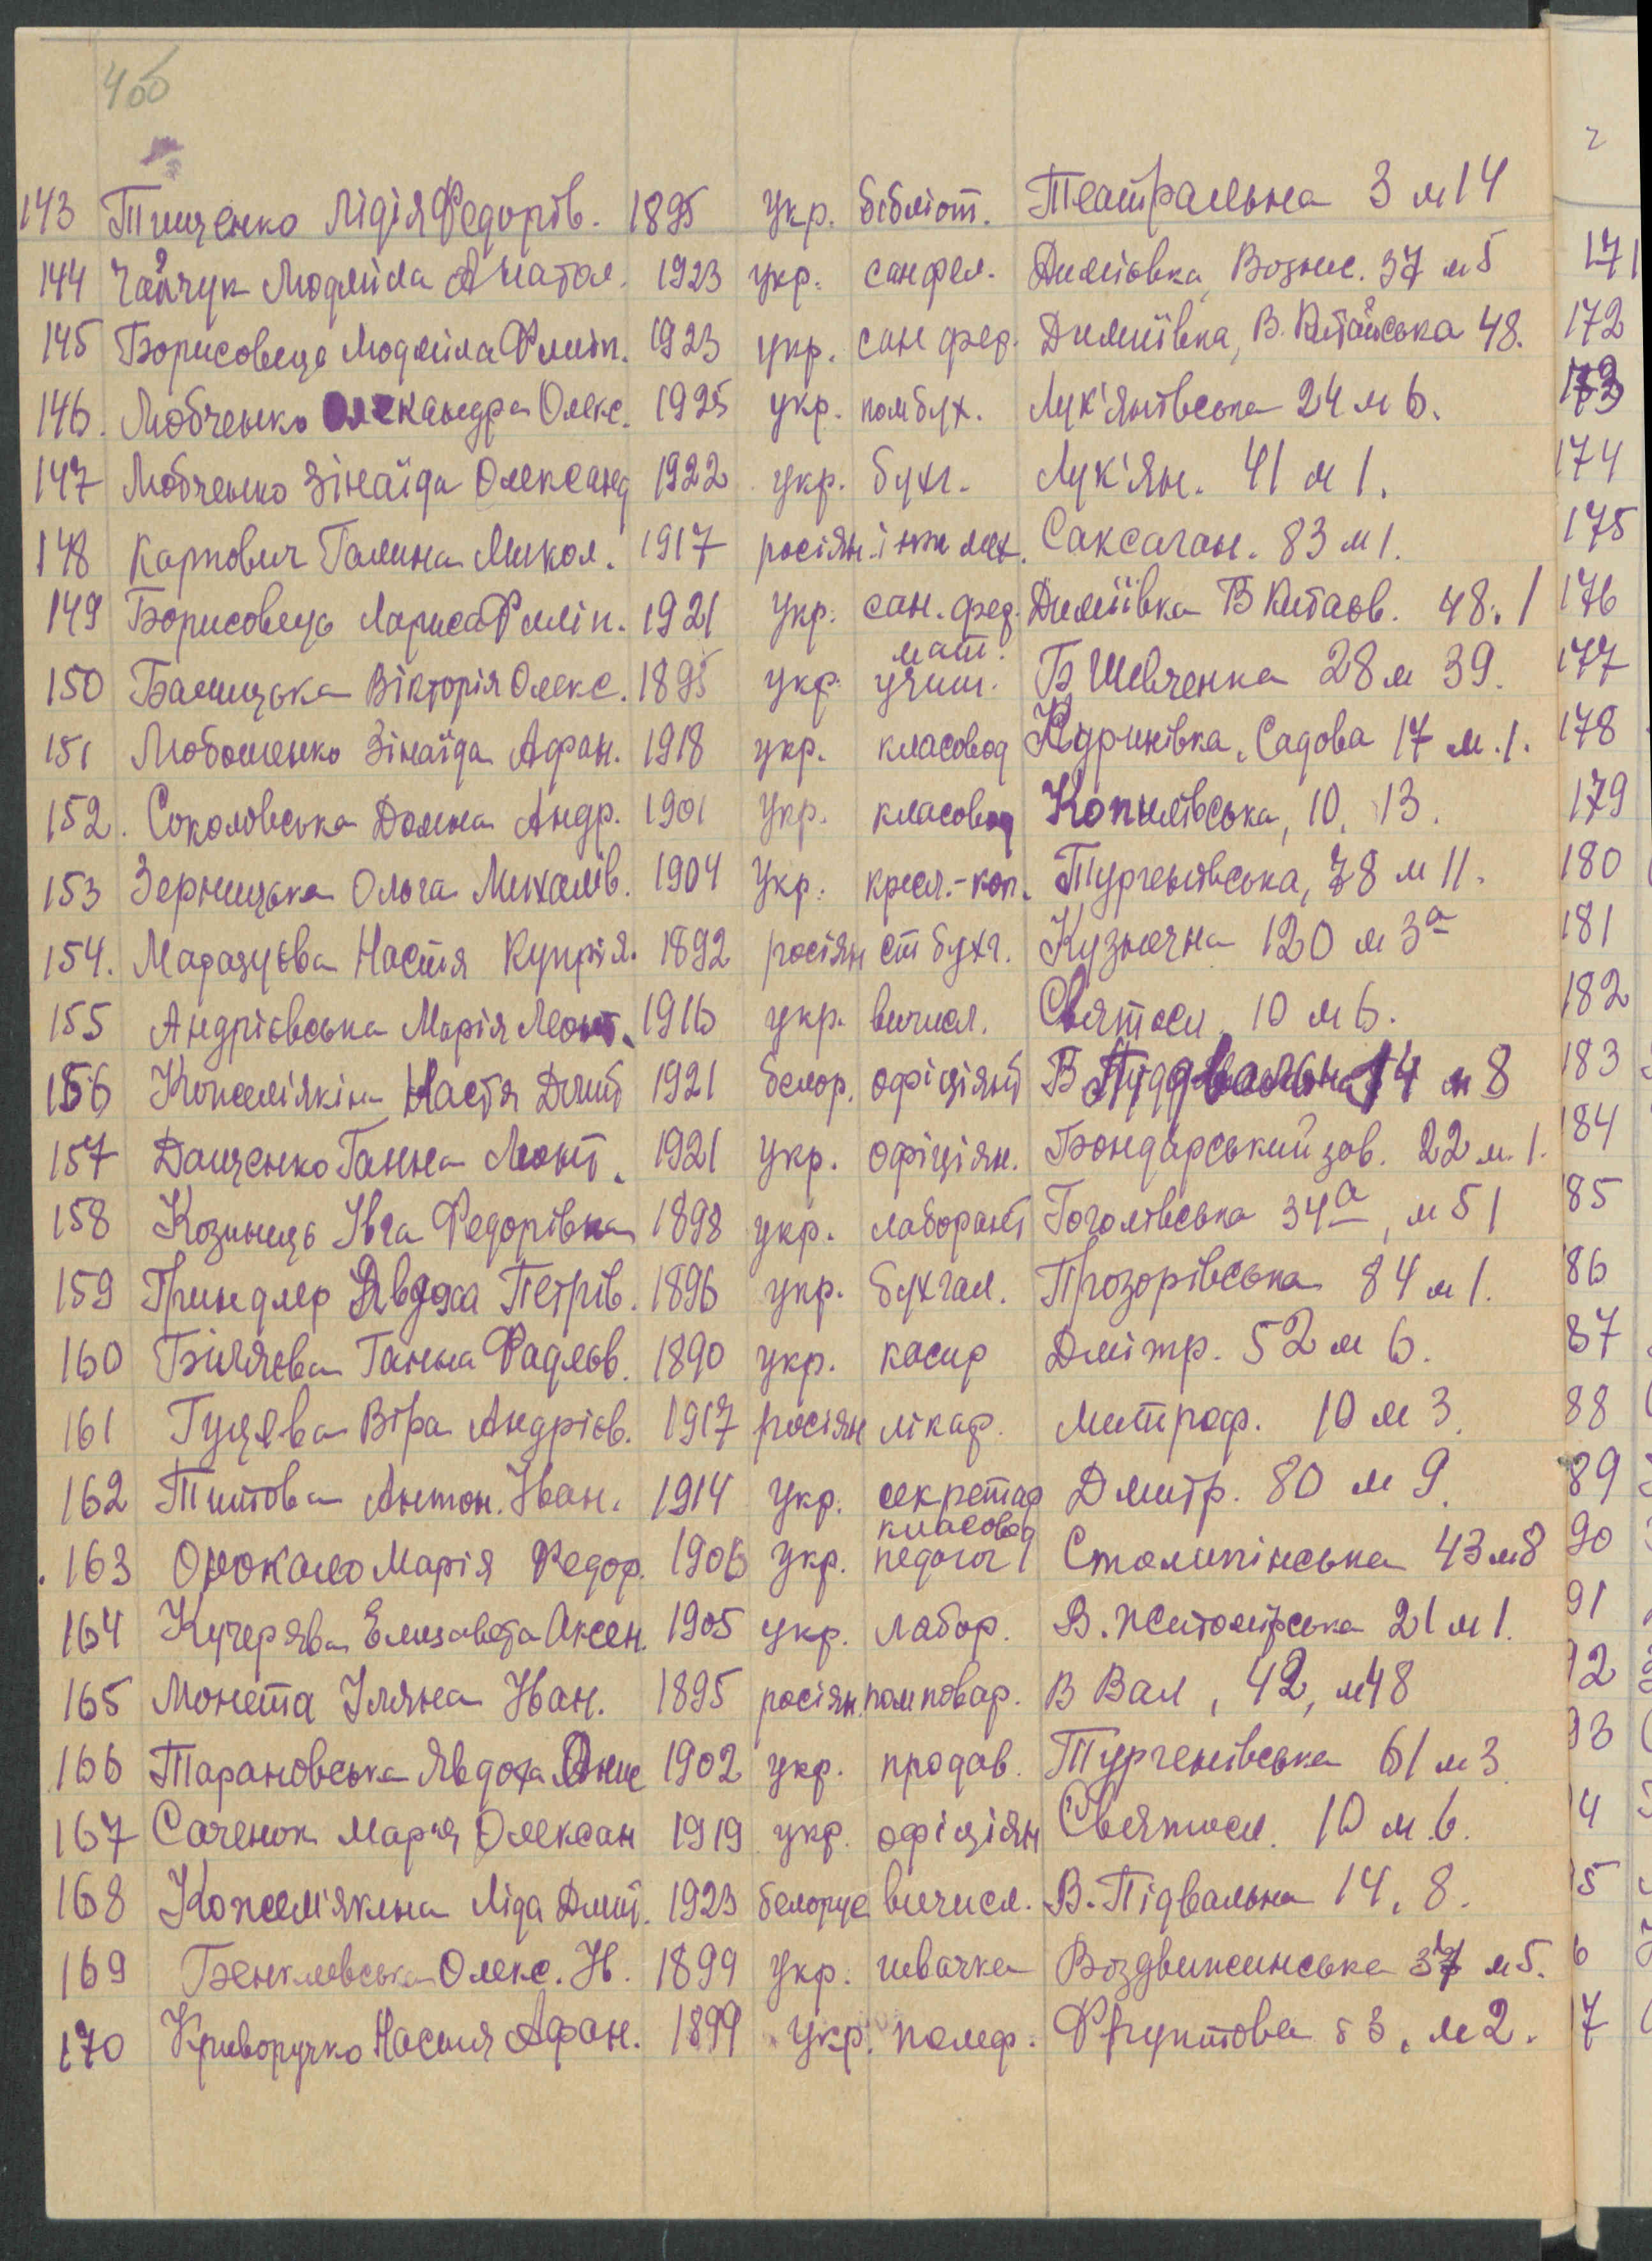 4об
143 Тищенко Лідія Федорів. 1895 укр. бібліот. Театральна 3 м 14
144 Чайчук Людміла Анатол. 1923 укр. санфел. Диміївка, Вознес. 37 м 5
145 Борисовець Людміла Филіп. 1923 укр. сан фер. Диміївка, В. Китаївська 48.
146. Любченко Олександра Олекс. 1925 укр. помбух. Лук'янівська 24 м 6.
147 Любченко Зінаїда Олександ 1922 укр. бухг. Лук'ян. 41 м 1.
148 Карпович Галина Микол. 1917 росіян. інж мех. Саксаган. 83 м 1.
149 Борисовець Лариса Филіп. 1921 укр. сан. фер. Диміївка В Китаєв. 48. 1
мат.
150 Балицька Вікторія Олекс. 1895 укр. учит. Б Шевченка 28 м 39.
151 Любошенко Зінаїда Афан. 1918 укр. класовод Куринівка, Садова 17 м. 1.
152. Соколовська Домна Андр. 1901 укр. класовод Копилівська, 10. 13.
153 Зерницька Ольга Михайлів. 1904 Укр. кресл.-коп. Тургенівська, 78 м 11.
154. Маразуєва Настя Купрія. 1892 росіян ст бухг. Кузнечна 120 м 3а
155 Андрієвська Марія Леонт. 1916 укр. вичисл. Святосл. 10 м 6.
156 Кожемякіна Настя Дмит 1921 белор. офіціянт В Підвальна 14 м 8
157 Дащенко Ганна Леонт. 1921 укр. офіціян. Бондарський зав. 22 м. 1.
158 Козинець Івга Федорівна 1898 укр. лаборант Гоголівська 34а, м 51
159 Гриндлер Явдоха Петрів. 1896 укр. бухгал. Прозорівська 84 м 1.
160 Біляєва Ганна Фадєєв. 1890 укр. касир Дмітр. 52 м 6.
161 Гуцева Віра Андрієв. 1917 росіян лікар. Митроф. 10 м 3.
162 Титова Антон. Іван. 1914 укр. секретар Дмитр. 80 м 9.
класовод
163 Онокало Марія Федор. 1906 укр. педагог Столипінська 43 м 8
164 Кучерява Елизавета Аксен. 1905 укр. лабор. В. Житомірська 21 м 1.
165 Монета Уляна Іван. 1895 росіян. помповар. В Вал, 42, м 48
166 Тарановська Явдоха Онис 1902 укр. продав. Тургенівська 61 м 3
167 Саченок Марія Олексан 1919 укр. офіціян Святосл. 10 м. 6.
168 Кожем'якина Ліда Дмит. 1923 белорус вичисл. В. Підвальна 14, 8.
169 Бенклевська Олекс. Ів. 1899 укр. швачка Воздвиженська 37 м 5.
170 Криворучко Настя Афан. 1899 укр. Фруктова 53, м 2.
171
172
173
174
175
176
177
178
179
180
181
182
183
184
85
86
87
88
89
90
91
92
93
4
5
6
7